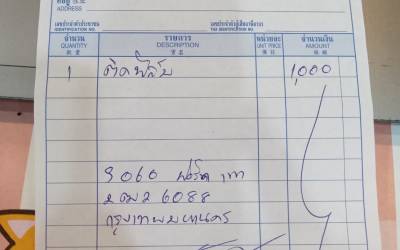 ที่อยู่
ADDRESS
เลขประจำตัวประชาชน
IDENTIFICATION NO.
เลขประจำตัวผู้เสียภาษีอากร
TAX IDENTIFICATION NO.
จำนวน รายการ หน่วยละ จำนวนเงิน
QUANTITY DESCRIPTION UNIT PRICE AMOUNT
數量 貨名 價 銀
1 ติดฟิล์ม 1,000
2ฒฒ 6088
กรุงเทพมหานคร